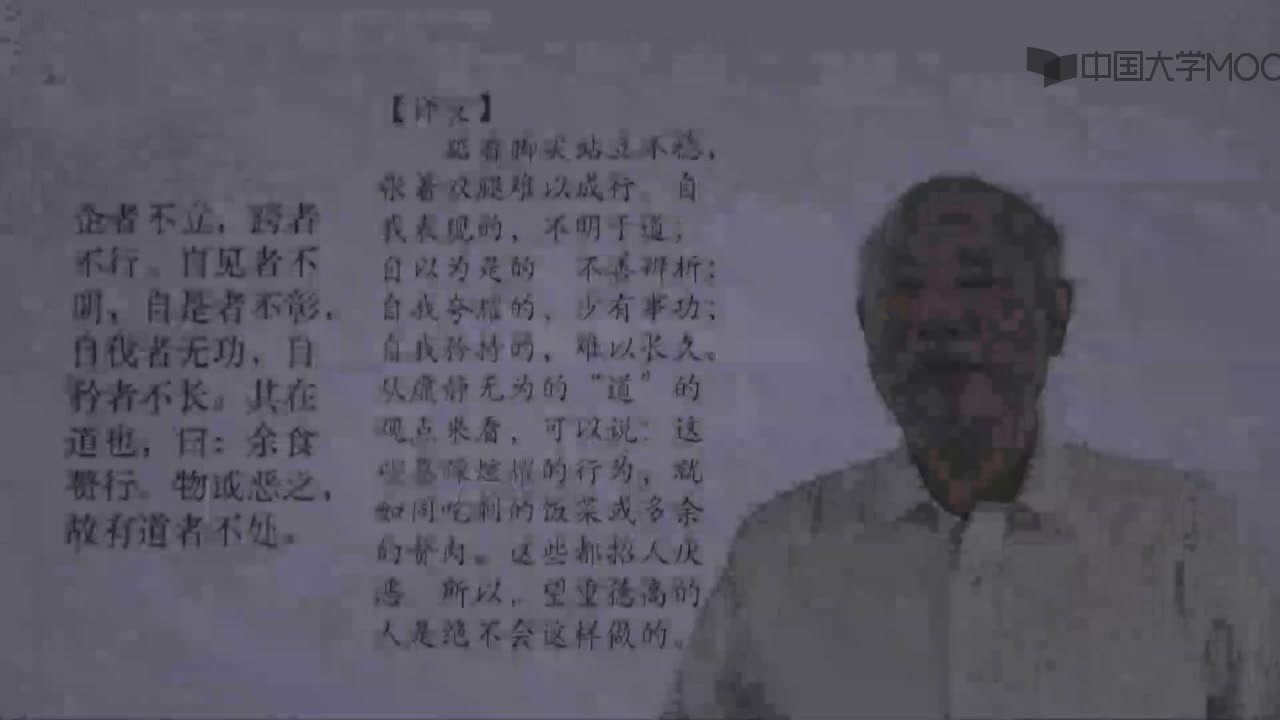 中国大学MOO
企者不立，跨者
不行。自见者不
明，自是者不彰，
自伐者无功，自
矜者不长。其在
道也，曰：余食
赘行。物或恶之，
故有道者不处。
【译文】
踮着脚尖站立不稳，
张着双腿难以成行。自
我表现的，不明于道；
自以为是的 不善辨析；
自我夸耀的，少有事功；
自我矜持的，难以长久。
从虚静无为的“道”的
观点来看，可以说：这
的行为，就
如同吃剩的饭菜或多余
的赘肉。这些都招人厌
恶 所以，望重德高的
人是绝不会这样做的。